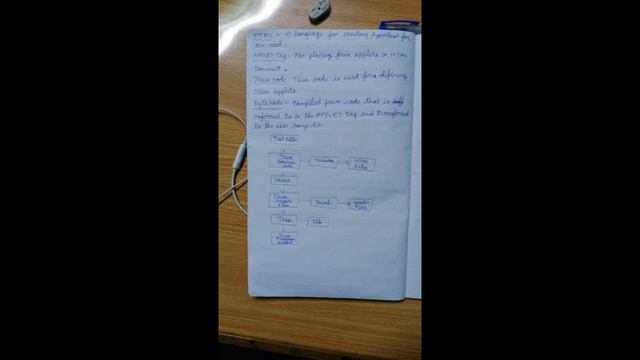 HTML - A language for creating hypertext for
the web.
APPLET Tag - For placing java applets in HTML
Document.
Java code - Java code is used for defining
Java applets.
Bytecode - Compiled java code that is
referred to in the APPLET tag and transferred
to the user computer
Text editor
Java
Source
Code
Javadoc
HTML
Files
Javac
Java
Class
Files
Javah
Header
Files
Java
Jdb
Java
Program
Output